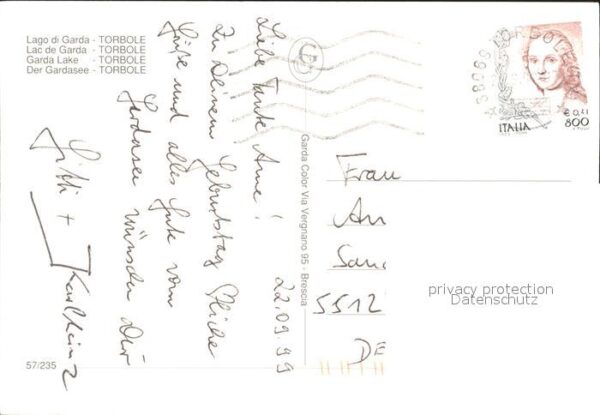 Lago di Garda - TORBOLE
Lac de Garda - TORBOLE
Garda Lake - TORBOLE
Der Gardasee - TORBOLE
22.09.99
Liebe Tante Anne!
Zu Deinem Geburtstag
Grüße und alles Gute vom
Gardasee wünschen Dir
+ Karlheinz
Garda Color Via Vergnano 95 - Brescia
ITALIA
€ 0,41
800
Frau
An
San
5512
DE
privacy protection
Datenschutz
57/235